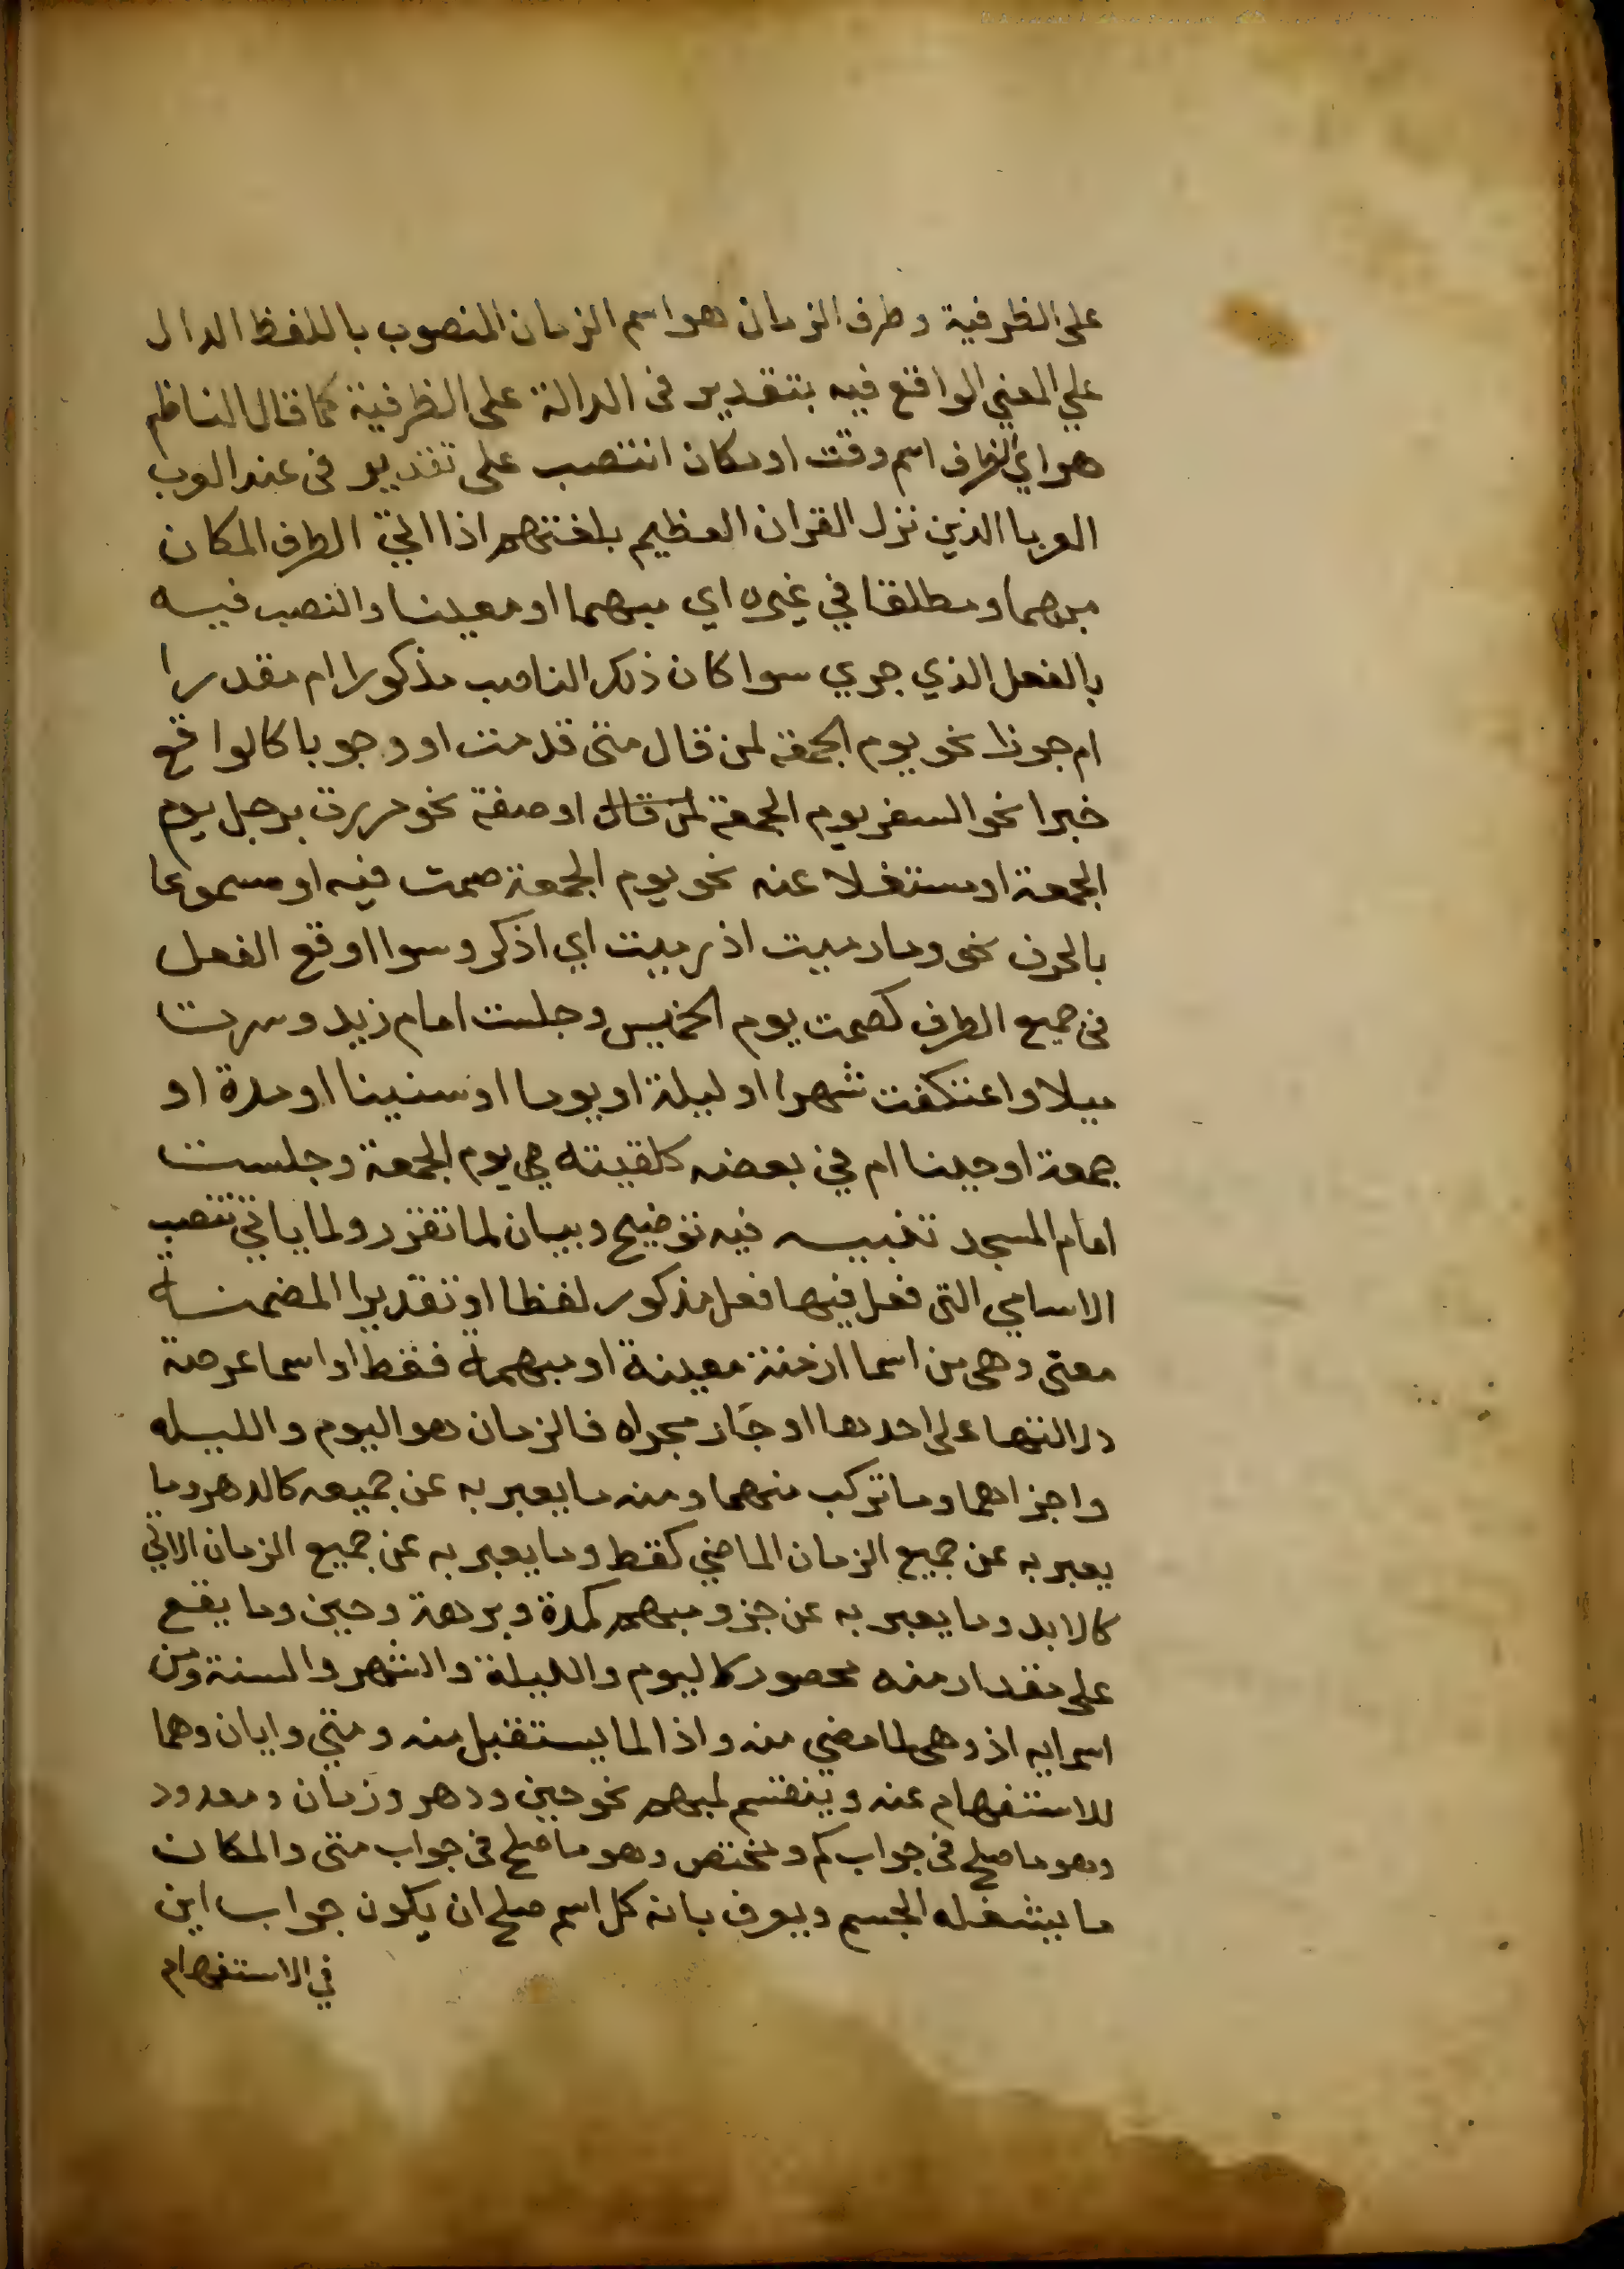 على الظرفية وظرف الزمان هو اسم الزمان المنصوب باللفظ الدال
علي المعني الواقع فيه بتقدير فى الدالة على الظرفية كما قال الناظم
هو اي الظرف اسم وقت او مكان انتصب على تقدير فى عند العرب
العربا الذين نزل القران العظيم بلغتهم اذا اتي الظرف المكان
مبهما ومطلقا في غيره اي مبهما او معينا والنصب فيه
بالفعل الذي جري سوا كان ذلك الناصب مذكورا ام مقدرا
ام جوزا نحو يوم الجمعة لمن قال متى قدمت او وجوبا كالواقع
خبرا نحو السفر يوم الجمعة لمن قال او صفة نحو مررت برجل يوم
الجمعة او مشتغلا عنه نحو يوم الجمعة صمت فيه او مسموعا
بالحرف نحو وما رميت اذ رميت اي اذكر وسوا اوقع الفعل
فى جميع الظرف كصمت يوم الخميس وجلست امام زيد وسرت
ميلا واعتكفت شهرا او ليلة او يوما او سنينا او مدة او
جمعة او حينا ام في بعضه كلقيته في يوم الجمعة وجلست
امام المسجد تنبيه فيه توضيح وبيان لما تقرر ولما ياتي تنصب
الاسامي التى فعل فيها فعل مذكور لفظا او تقديرا المضمنة
معنى وهى من اسما ازمنة معينة او مبهمة فقط او اسما عرضة
دلالتها على احدها او جار مجراه فالزمان هو اليوم والليله
واجزاهما وما تركب منهما ومنه ما يعبر به عن جميعه كالدهر وما
يعبر به عن جميع الزمان الماضي كقط وما يعبر به عن جميع الزمان الاتي
كالابد وما يعبر به عن جزو مبهم كمدة وبرهة وحين وما يقع
على مقدار منه محصور كاليوم والليلة والشهر والسنة ومن
اسمايه اذ وهى لما مضي منه واذا لما يستقبل منه ومتي وايان وهما
للاستفهام عنه وينقسم لمبهم نحو حين ودهر وزمان ومعدود
وهو ما صلح فى جواب كم ومختص وهو ما صلح فى جواب متى والمكان
ما يشغله الجسم ويعرف بانه كل اسم صلح ان يكون جواب اين
في الاستفهام